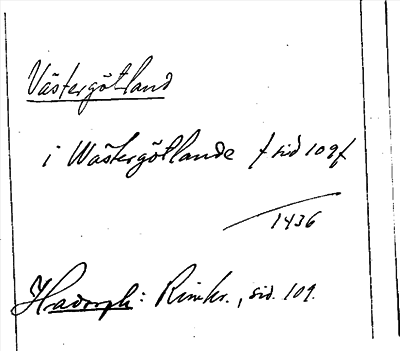 Västergötland
i Wästergötlande f sid 109f
1436
Hadorph: Rimkr., sid. 109.